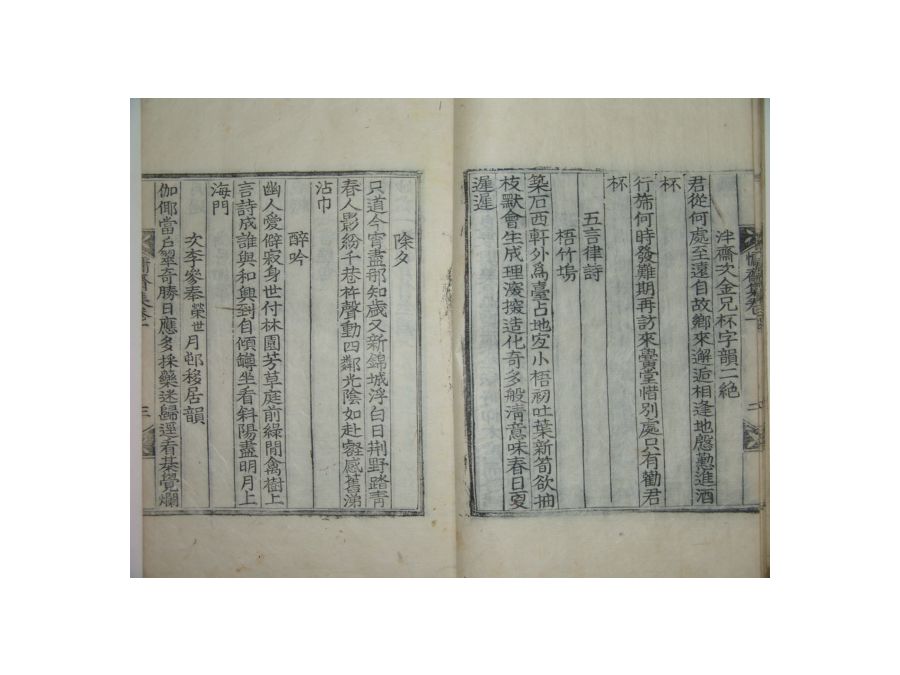 泮齋次金兄杯字韻二絶
君從何處至遠自故鄕來邂逅相逢地慇懃進酒
杯
行旆何時發難期再訪來黌堂惜別處只有勸君
杯
五言律詩
梧竹塢
築石西軒外爲臺占地小梧初吐葉新筍欲抽
枝默會生成理濃擬造化奇多般淸意味春日夏
遲遲
除夕
只道今宵盡那知歲又新錦城浮白日荆野踏靑
春人影紛千巷杵聲動四鄰光陰如赴壑感舊涕
沾巾
醉吟
幽人愛僻寂身世付林園芳草庭前綠閒禽樹上
言詩成誰與和興到自傾罇坐看斜陽盡明月上
海門
次李參奉榮世月邨移居韻
伽倻當戶翠奇勝日應多採藥迷歸逕看棊覺爛
齋集卷一
三
齋集卷一
二